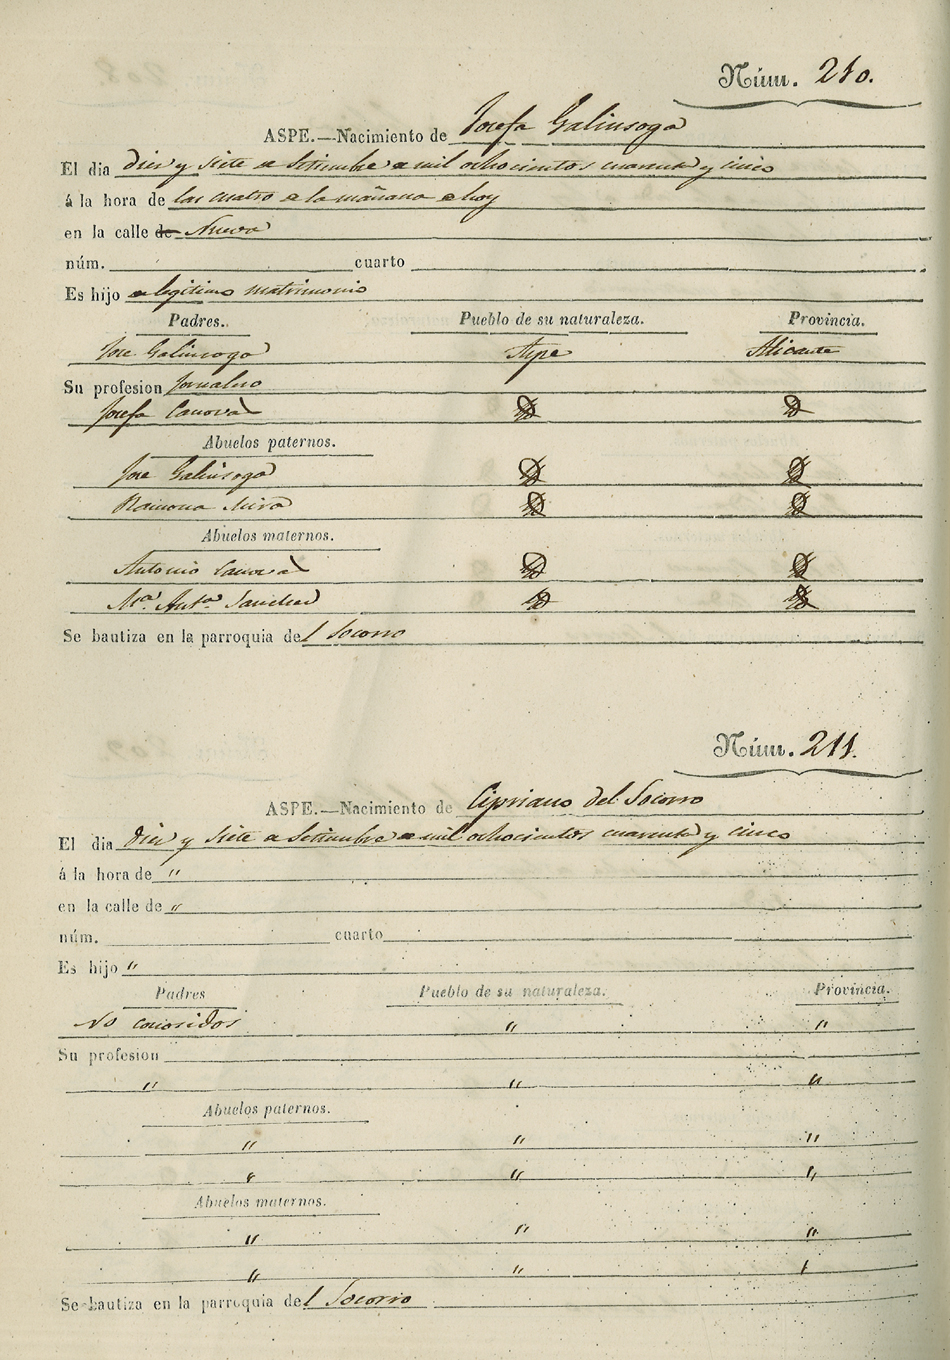 Núm. 210.
ASPE.—Nacimiento de Josefa Galinsoga
El dia diez y siete de Setiembre de mil ochocientos cuarenta y cinco
á la hora de las cuatro de la mañana de hoy
en la calle de Nueva
núm. cuarto
Es hijo de legitimo matrimonio
Padres. Pueblo de su naturaleza. Provincia.
Jose Galinsoga Aspe Alicante
Su profesion Jornalero
Josefa Canovas
Abuelos paternos.
Jose Galinsoga
Ramona Mira
Abuelos maternos.
Antonio Canovas
Mª. Antª. Sanchez
Se bautiza en la parroquia del Socorro
Núm. 211.
ASPE.—Nacimiento de Cipriano del Socorro
El dia diez y siete de Setiembre de mil ochocientos cuarenta y cinco
á la hora de "
en la calle de "
núm. cuarto
Es hijo "
Padres Pueblo de su naturaleza. Provincia.
No conosidos " "
Su profesion
" " "
Abuelos paternos.
" " "
" " "
Abuelos maternos.
" " "
" " "
Se bautiza en la parroquia del Socorro